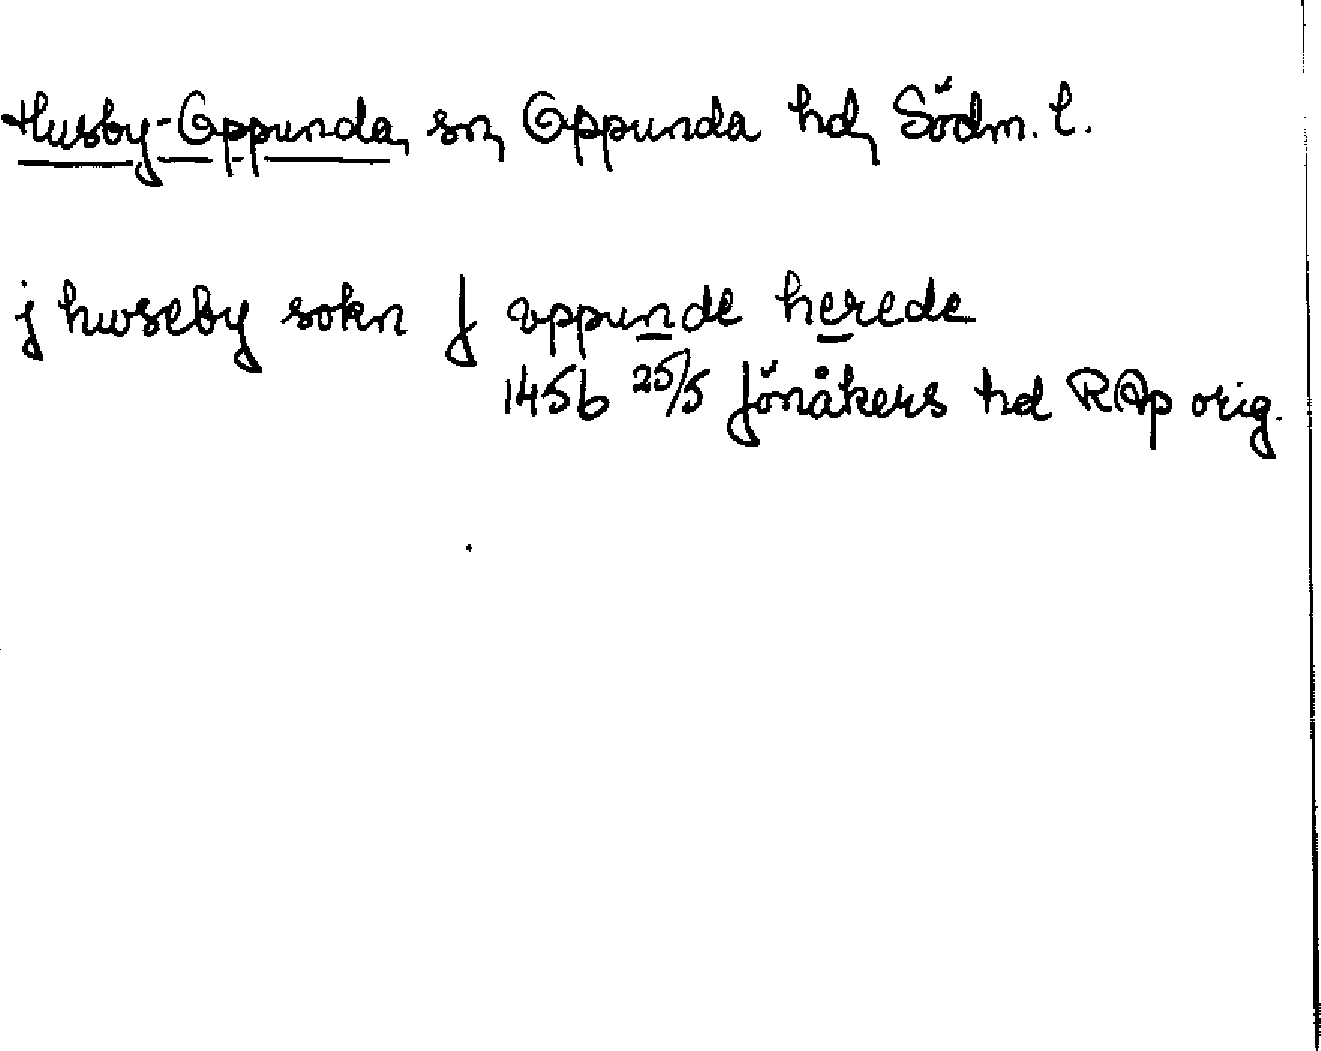 Husby-Oppunda, sn, Oppunda hd, Södm. l.
j hwseby sokn J vppunde herede
1456 25/5 Jönåkers hd RAp orig.